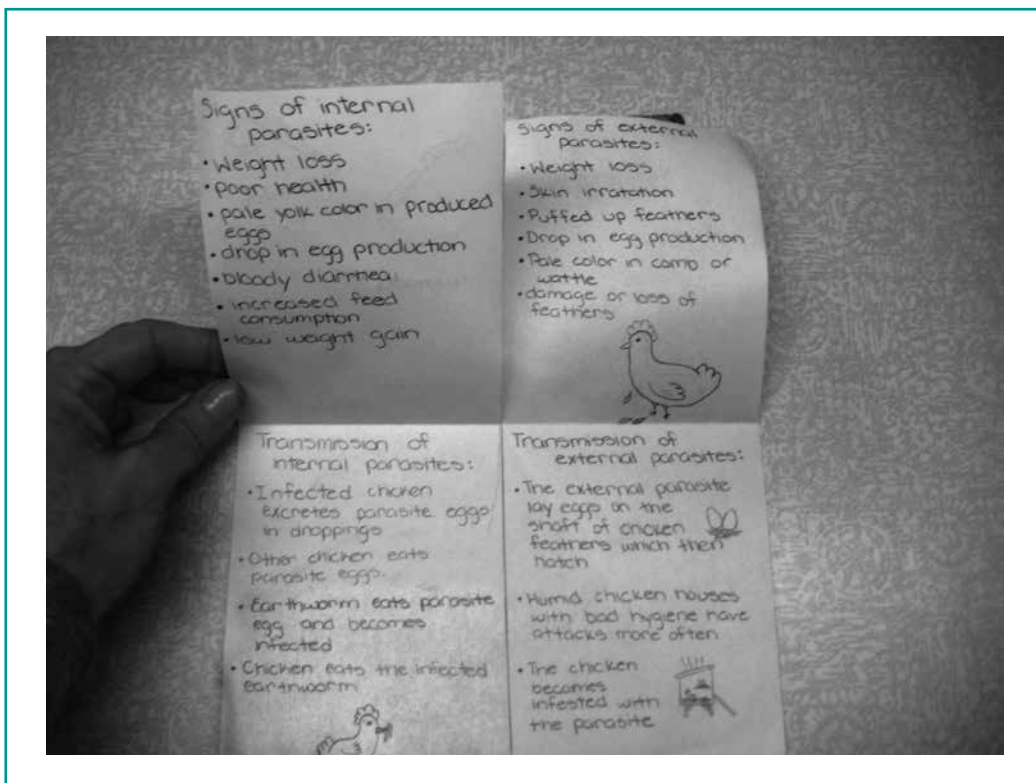 Signs of internal
parasites:
• Weight loss
• poor health
• pale yolk color in produced
eggs
• drop in egg production
• bloody diarrhea
• increased feed
consumption
• low weight gain
Signs of external
parasites:
• Weight loss
• Skin irratation
• Puffed up feathers
• Drop in egg production
• Pale color in comp or
wattle
• damage or loss of
feathers
Transmission of
internal parasites:
• Infected chicken
excretes parasite eggs
in droppings
• Other chicken eats
parasite eggs.
• Earthworm eats parasite
egg and becomes
infected
• Chicken eats the infected
earthworm
Transmission of
external parasites:
• The external parasite
lay eggs on the
shaft of chicken
feathers which then
hatch
• Humid chicken houses
with bad hygiene have
attacks more often
• The chicken
becomes
infested with
the parasite